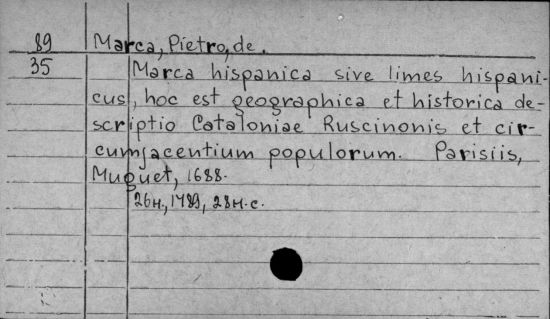 89 Marca, Pietro, de.
35 Marca hispanica sive limes hispani-
cus, hoc est geographica et historica de-
scriptio Cataloniae Ruscinonis et cir-
cumjacentium populorum. Parisiis,
Muguet, 1688.
26н., 1489, 28н.с.